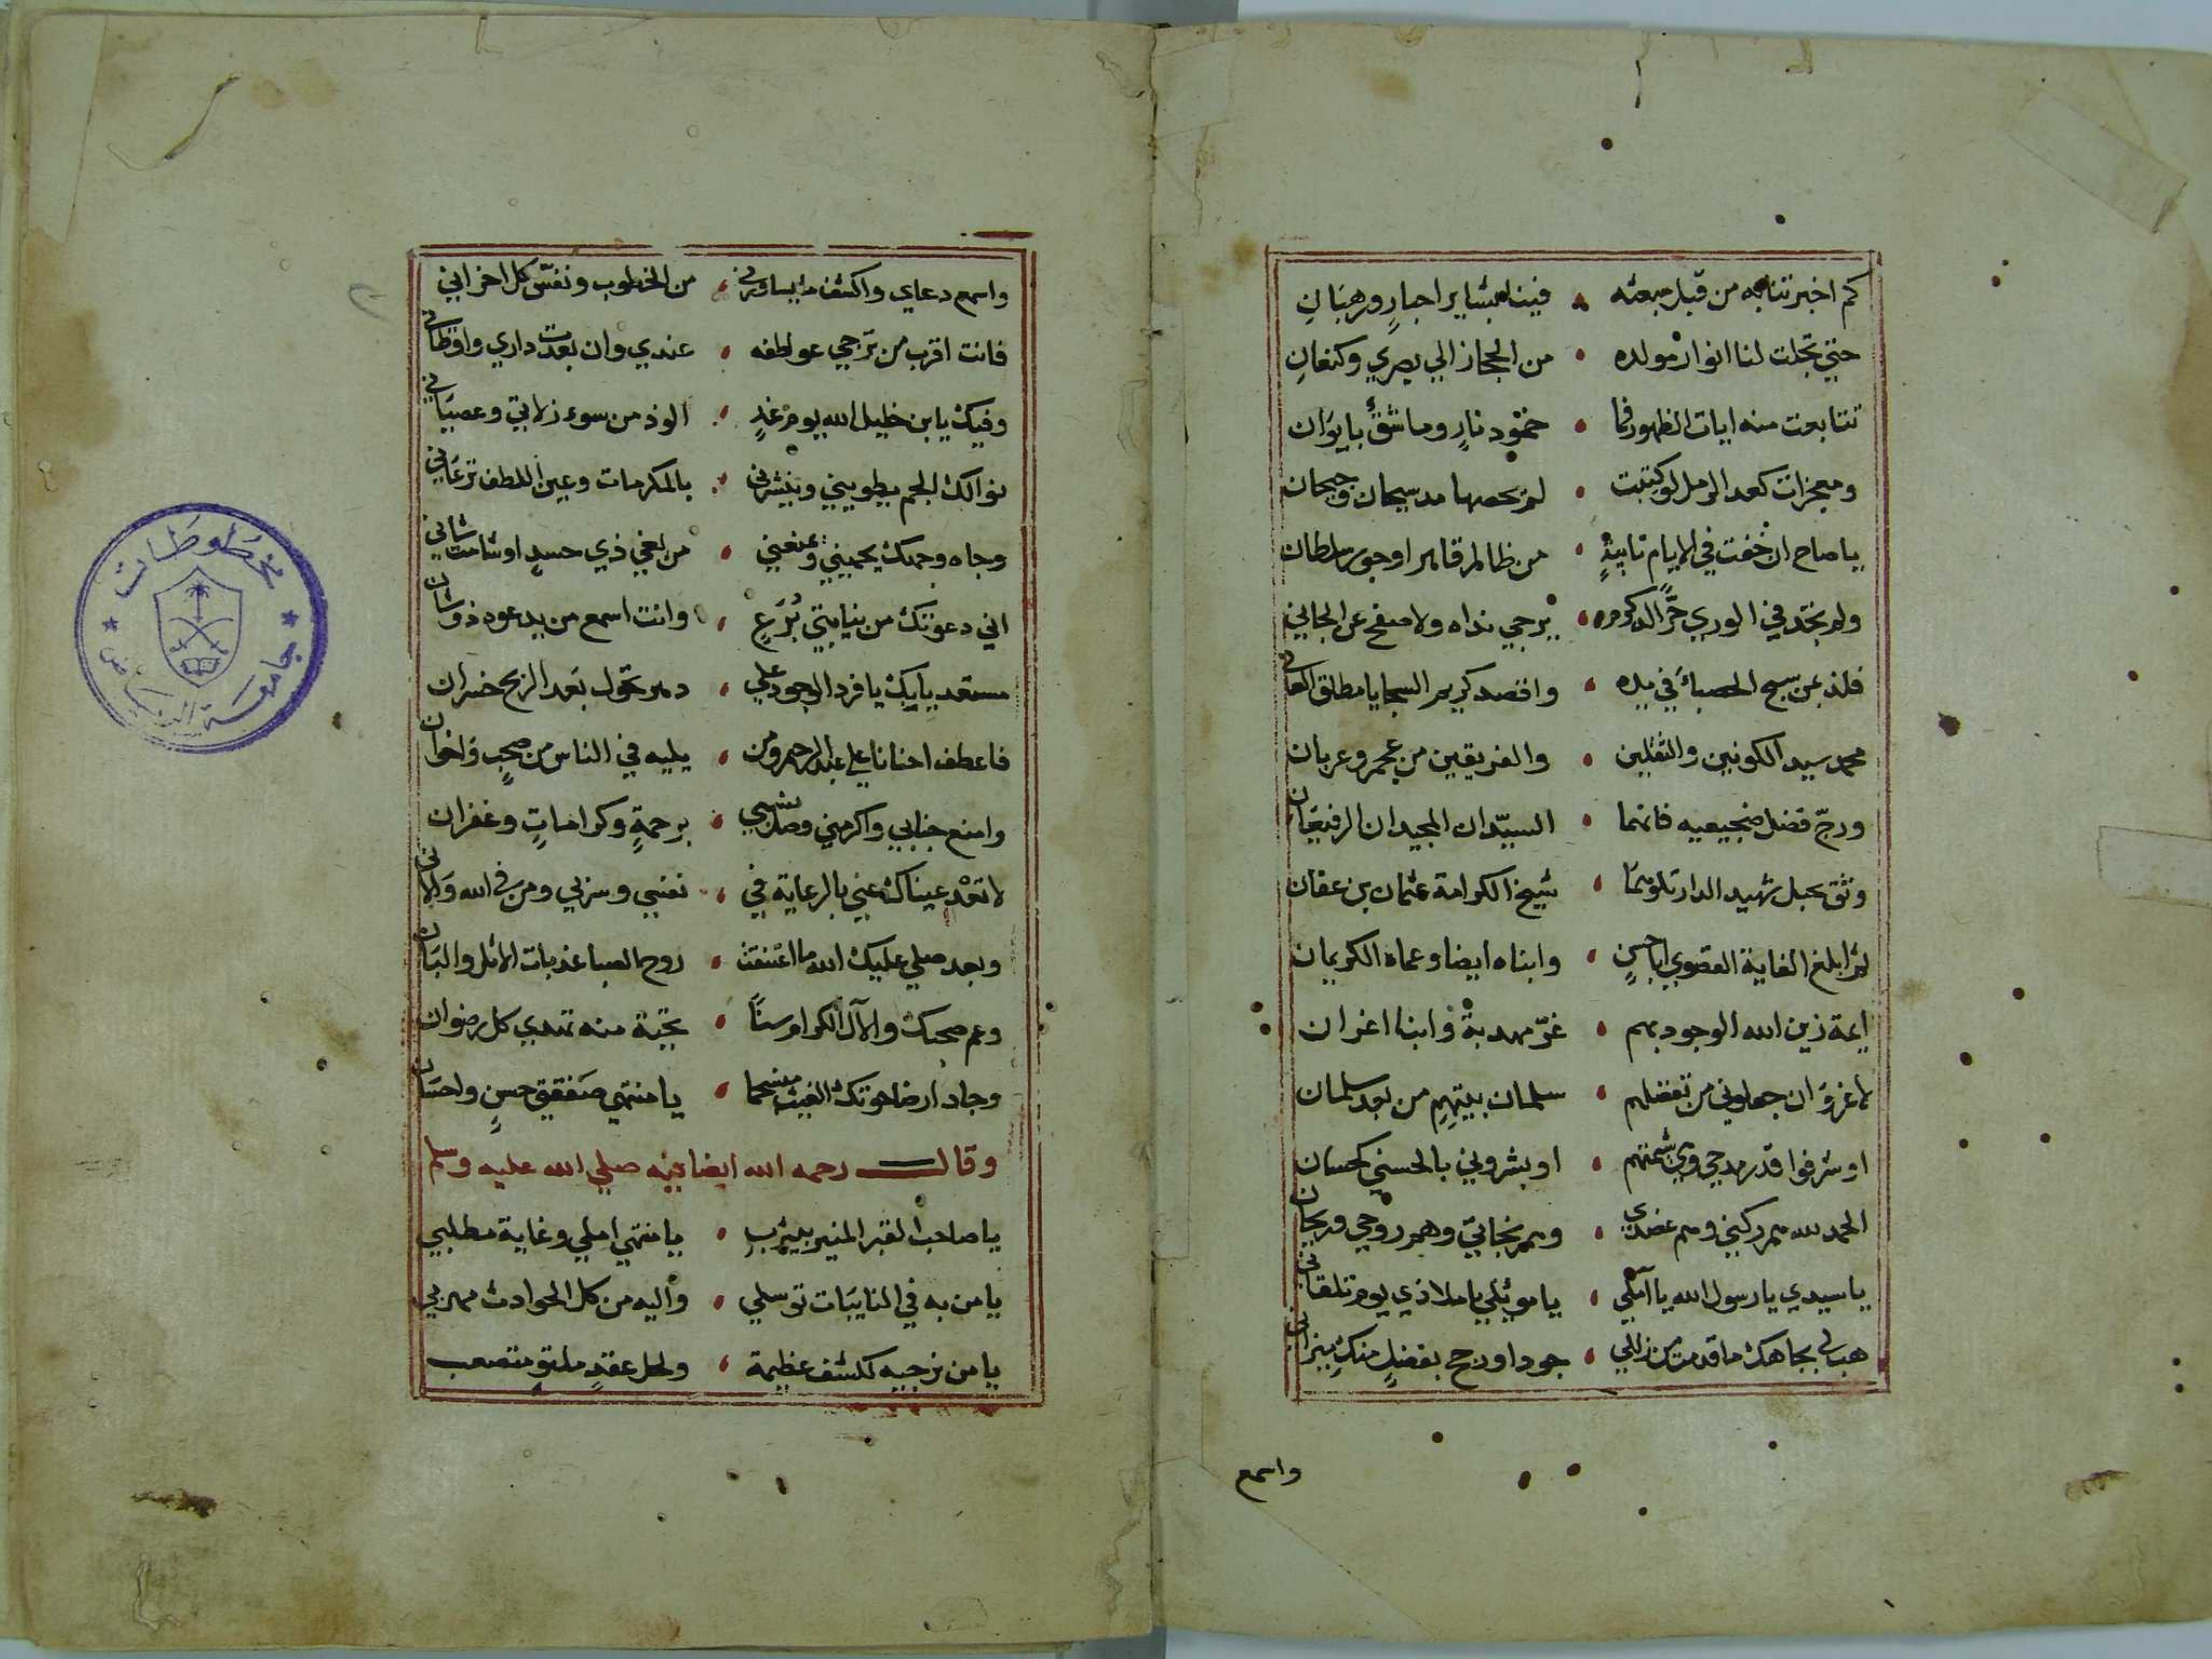 كم اخبرتنا به من قبل مبعثه فينا بشاير احبارٍ ورهبَانِ
حتي تجلت لنا انوار مولده من الحجاز الي بصري وكنعانِ
تتابعت منه ايات الظهور فما خمود نارٍ وما شقٌ بايوَان
ومعجزات كعد الرمل لو كتبت لم يحصها مد سيحان وجيحان
ياصاح ان خفت في الايام نايبةٍ من ظالم قاهر او جور سلطان
ولم تجد في الوري حرًّا يرجي نداه ولا صفح عن الجاني
فلذ بمن سبح الحصباءَ في يده واقصد كريم السجايا مطلق العاني
محمد سيد الكونين والثقلين والفريقين من عجم وعربان
ورجّ فضل ضجيعيه فانهما السيّدان المجيدان الرفيعَان
وثق بحبل شهيد الدار تلوهما شيخ الكرامة عثمان بن عفان
ثم ابلغ الغاية القصوي اباحسنٍ وابناه ايضا وعماه الكريمان
ايمة زين الله الوجود بهم غرّ مهدبة وابنا اغران
لا غروَ ان جعلوني من تفضلهم سلمان بيتهمِ من بعد سلمان
او شرفوا قدر مدحي او بشروني بالحسني كحسان
الحمد لله هم ركني وهم عضدي وهم نجاتي وهم روحي وريحان
ياسيدي يارسول الله يا املي يا موئلي يا ملاذي يوم تلقاني
هب لي بجاهك ما قدمت من زللي جودا ورجح بفضلٍ منكِ ميزاني
واسمع
واسمع دعاي واكشف ما يساورني من الخطوب ونفسّ كل احزاني
فانت اقرب من ترجي عواطفه عندي وان بعدت داري واوطاني
وفيك يابن خليل الله يوم غدٍ الوذ من سوء زلاتي وعصيَاني
نوالك الجم يطويني وينشرني بالمكرمات وعين اللطف ترعَاني
وجاه وجهك يحميني ويمنعني من بغي ذي حسدٍ او شامت شاني
اني دعوتك من نيابتي بُرَعٍ وانت اسمع من يدعوه ذوشان
مستعد بابك يافرد الوجود علي دهر تحول بعد الربح خسران
فاعطف احنانا علي عبد الرحيم ومن يليه في الناس من صحبٍ واخوان
وامنع جنابي واكرمني وصل نسبي برحمةٍ وكراماتٍ وغفران
لا تعْد عيناك عني بالرعاية في نفسي وسربي ومن في الله والاني
وبعد صلي عليك الله ما اعتنقت روح الصبا عذبات الاثل والبَان
وعم صحبك والآل الكرام سناً بتحية منه تهدي كل رضوان
وجاد ارضا حوتك الغيث منسجما يا منتهي حسنٍ واحسَان
وقال رحمه الله ايضا فيه صلي الله عليه وسلم
ياصاحب القبر المنير بيثربِ يا منتهي املي وغاية مطلبي
يا من به في النايبَات توسلي واليه من كل الحوادث مهربي
يا من نرجيه لكشف عظيمة ولحل عقدٍ ملتوٍ متصعب
مخطوطات
جامعة الرياض